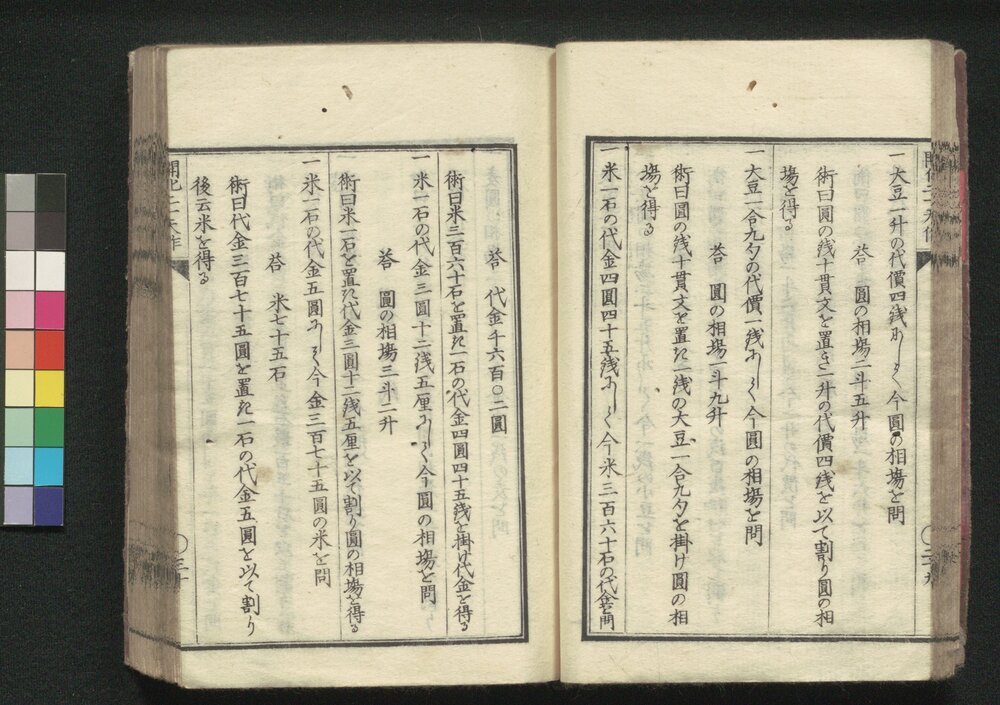 一大豆一升の代價四銭あしく今圓の相場を問
荅　圓の相場一斗五升
術曰圓の銭十貫文を置き一升の代價四銭を以て割り圓の相
場を得る
一大豆一合九勺の代價一銭あしく今圓の相場を問
荅　圓の相場一斗九升
術曰圓の銭十貫文を置き一銭の大豆一合九勺を掛け圓の相
場を得る
一米一石の代金四圓四十五銭あしく今米三百六十石の代金を問
荅　代金千六百〇二圓
術曰米三百六十石を置き一石の代金四圓四十五銭を掛け代金を得る
一米一石の代金三圓十二銭五厘あしく今圓の相場を問
荅　圓の相場三斗二升
術曰米一石を置き代金三圓十二銭五厘を以て割り圓の相場を得る
一米一石の代金五圓あしく今金三百七十五圓の米を問
荅　米七十五石
術曰代金三百七十五圓を置き一石の代金五圓を以て割り
後云米を得る
〇三十